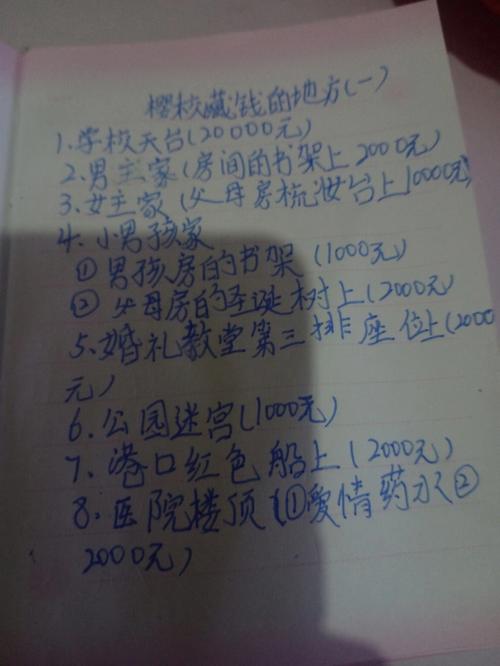 樱校藏钱的地方(一)
1.学校天台(20000元)
2.男主家(房间的书架上2000元)
3.女主家(父母房梳妆台上10000元)
4.小男孩家
①男孩房的书架(1000元)
②父母房的圣诞树上(2000元)
5.婚礼教堂第三排座位上(2000
元)
6.公园迷宫(1000元)
7.港口红色船上(2000元)
8.医院楼顶(①爱情药水②
2000元)